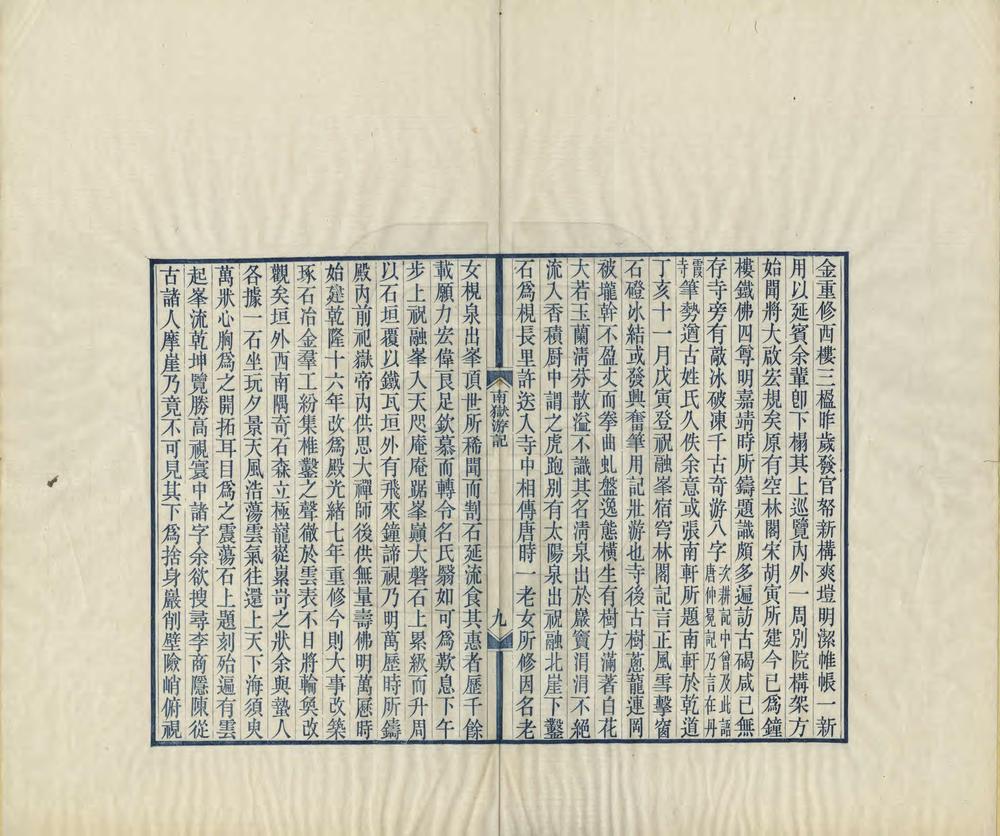 金重修西樓三楹昨歲發官帑新構爽塏明潔帷帳一新
用以延賓余輩卽下榻其上巡覽內外一周別院構架方
始聞將大啟宏規矣原有空林閣宋胡寅所建今已爲鐘
樓鐵佛四尊明嘉靖時所鑄題識頗多遍訪古碣咸已無
存寺旁有敲冰破凍千古奇游八字次耕記中曾及此語唐仲冕記乃言在丹
霞寺筆勢遒古姓氏久佚余意或張南軒所題南軒於乾道
丁亥十一月戊寅登祝融峯宿穹林閣記言正風雪擊窗
石磴冰結或發興奮筆用記壯游也寺後古樹蔥蘢連岡
被壠幹不盈丈而拳曲虬盤逸態橫生有樹方滿著白花
大若玉蘭淸芬散溢不識其名淸泉出於巖竇涓涓不絕
流入香積厨中謂之虎跑別有太陽泉出祝融北崖下鑿
石爲梘長里許送入寺中相傳唐時一老女所修因名老
南嶽游記
九
女梘泉出峯頂世所稀聞而割石延流食其惠者歷千餘
載願力宏偉艮足欽慕而轉令名氏翳如可爲歎息下午
步上祝融峯入天咫庵庵踞峯巔大磐石上累級而升周
以石垣覆以鐵瓦垣外有飛來鐘諦視乃明萬歷時所鑄
殿內前祀嶽帝內供思大禪師後供無量壽佛明萬歷時
始建乾隆十六年改爲殿光緒七年重修今則大事改築
琢石冶金羣工紛集椎鑿之聲徹於雲表不日將輪奐改
觀矣垣外西南隅奇石森立極巃嵸纍岢之狀余與蟄人
各據一石坐玩夕景天風浩蕩雲氣往還上天下海須臾
萬狀心胸爲之開拓耳目爲之震蕩石上題刻殆遍有雲
起峯流乾坤覽勝高視寰中諸字余欲搜尋李商隱陳從
古諸人摩崖乃竟不可見其下爲捨身巖削壁險峭俯視